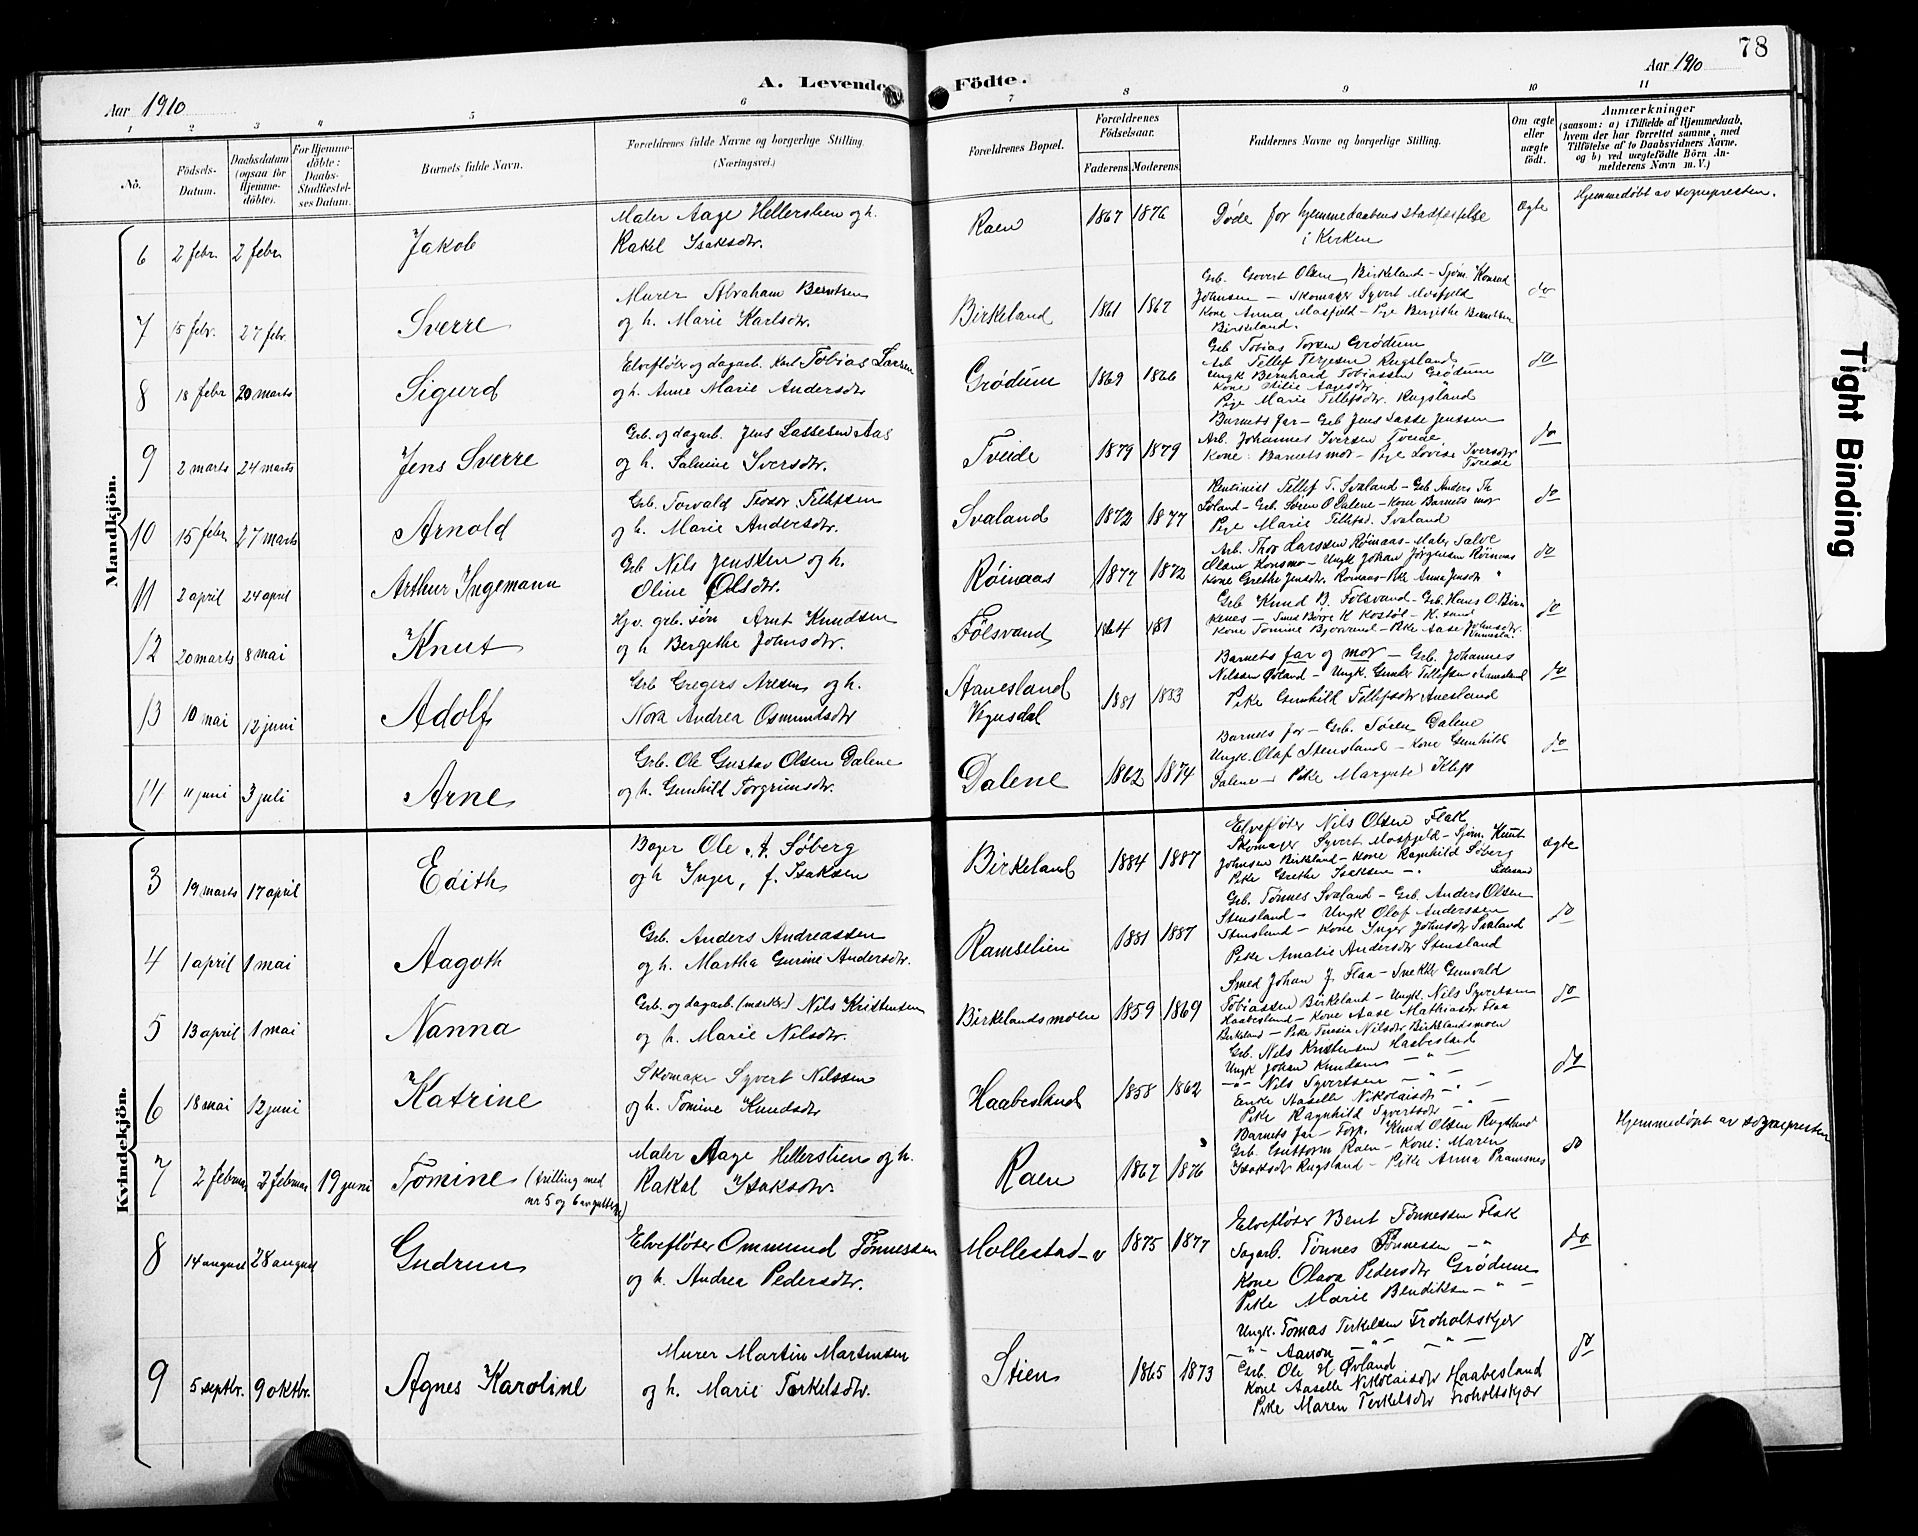 78
Aar 1910
A. Levende Födte.
Aar 1910
1 2 3 4 5 6 7 8 9 10 11
No.
Födsels-Datum.
Daabsdatum (ogsaa for Hjemme-döbte).
For Hjemme-döbte: Daabs-Stadfæstel-ses Datum.
Barnets fulde Navn.
Forældrenes fulde Navne og borgerlige Stilling. (Næringsvei.)
Forældrenes Bopæl.
Forældrenes Födselsaar.
Faderens Moderens
Faddernes Navne og borgerlige Stilling.
Om ægte eller uægte födt.
Anmærkninger
(saasom: a) i Tilfælde af Hjemmedaab,
hvem der har forrettet samme, med
Tilföielse af to Daabsvidners Navne.
og b) ved uægtefödte Börn An-
melderens Navn m. V.)
Mandkjön.
6 2 febr. 2 febr. Jakob
Maler Aage Hellerslien og h.
Rakel Isaksdtr.
Raen 1867 1876
Døde før hjemmedaabens stadfæstelse
i Kirken
Ægte
Hjemmedøbt av sognepresten.
7 15 febr. 27 febr. Sverre
Murer Abraham Berntsen
og h. Marie Karlsdtr.
Birkeland 1861 1867
Grb. Govert Olsen, Birkeland - Sjøm. Konrad
Johnsen - Skomager Syvert Mosfjeld
Kone Anna Mosfjeld - Pige Bergithe Berntsen
Birkeland.
do
8 18 febr 20 marts Sigurd
Elvefløter og dagarb. Karl Tobias Larsen
og h. Anne Marie Andersdtr
Grødum 1869 1866
Grb Tobias Torsen Grødum
Arb. Tellef Terjesen Rugsland -
Ungk Bernhard Tobiassen Grødum
Kone Aagesdtr. "
Pige Marie Tellefsdtr. Rugsland
do
9 2 marts 24 marts Jens Sverre
Grb. og dagarb. Jens Lassesen Aas
og h. Salmine Iversdtr.
Tveide 1879 1879
Barnets far - Grb Jens Lasse Jenssen
Arb. Johannes Iversen Tveide,
Kone: Barnets mor - Pige Lovise Iversdtr
Tveide
do
10 15 febr. 27 marts Arnold
Grb. Torvald Teodor Tellefsen
og h. Marie Andersdtr.
Svaland 1872 1877
Rentinist Tellef T. Svaland - Grb Anders Th
Svland - Grb. Søren O Dalene - Kone Barnets mor
Pige Marie Tellefsd. Svaland
do
11 2 april 24 april Arthur Ingemann
Grb Nils Jenssen og h.
Oline Olsdtr.
Røinaas 1877 1872
Arb. Thor Larssen Røinaas - Maler Salve
Olsen Konsmo - Ungk Johan Jørgensen Røinaas
Kone Grethe Jensdtr. Roinaas - Pike Anne Jensdtr "
do
12 20 marts 8 mai Knut
Hjv. grb. søn Arnt Knudsen
og h Bergithe Johnsdtr.
Følsvand 1864
Grb Knud B. Følsvand - Grb. Hans O. Birk
kenes - Smed Børre K Kostøl - K. sand
Kone Tomine Bjorvand - Pike Aase Johnsdtr.
do
13 10 mai 12 juni Adolf
Grb Gregers Aresen og h.
Nora Andrea Osmundsdtr
Aanesland
Vegusdal
1881 1883
Barnets far og mor - Grb. Johannes
Nilssen Øvland - Ungk. Gunder Tellefsen Aanesland
Pike Gunhild Tellefsdtr Anesland
do
14 11 juni 3 juli Arne
Grb. Ole Gustav Olsen Dalene
og h. Gunhild Torgrimsdtr.
Dalene 1862 1874
Barnets far - Grb. Søren Dalene
Ungk. Olaf Stensland - Kone Gunhild
Dalene - Pike Margrete Klepp
do
Kvindekjön.
3 19 marts 17 april Edith
Bager Ole A. Søberg
og h Inger, f. Isaksen
Birkeland 1884 1887
Elvefløter Nils Olsen Flak
Skomager Syvert Mosfjeld - Sjøm. Knut
Johnsen Birkeland - Kone Ragnhild Søberg
Pike Grethe Isaksen -
ægte
4 1 april 1 mai Aagoth
Grb. Anders Andreassen
og h. Martha Gurine Andersdtr.
Ramselien 1881 1887
Grb. Tønnes Svaland - Grb. Anders Olsen
Stensland - Ungk Olaf Anderssen
Stensland - Kone Inger Johnsdtr Svaland
Pike Amalie Andersdtr Stensland
do
5 13 april 1 mai Nanna
Grb. og dagarb. (mærker) Nils Kristensen
og h. Marie Nilsdtr.
Birkelandsmoen 1859 1869
Smed Johan J. Flaa - Snekker Gunvald
Tobiassen Birkeland - Ungk. Nils Syvertsen
Haabesland - Kone Aase Mathiasdtr Flaa
Birkeland - Pike Tomine Nilsdtr Birklandsmoen
do
6 18 mai 12 juni Katrine
Skomaker Syvert Nilssen
og h. Tomine Knudsdtr
Haabesland 1858 1862
Grb. Nils Kristensen Haabesland
Ungk Johan Knudsen - " -
- " - Nils Syvertsen - " -
Enke Aaselle Nikolaisdtr - " -
Pike Ragnhild Syvertsdtr - " -
do
7 2 februar 3 februar 19 juni Tomine (trilling med
nr 5 og 6 av guttene)
Maler Aage Hellerslien og h.
Rakel Isaksdtr.
Raen 1867 1876
Barnets far - Forp. Knud Olsen Rugsland
Grb. Guttorm Raen - Kone: Maren
Isaksdtr Rugsland - Pike Anna Pramsnes
do
Hjemmedøpt av sognepresten
8 14 august 28 august Gudrun
Elvefløter Ommund Tønnessen
og h. Andrea Pedersdtr.
Mollestad-v 1875 1877
Elvefløter Bent Tønnessen Flak
Dagarb. Tønnes Tønnessen - " -
Kone Olava Pedersdtr Grødum
Pike Marie Bendiksen - " -
do
9 5 septbr. 9 oktbr. Agnes Karoline
Murer Martin Martinsen
og h. Marie Terkelsdtr.
Stien 1865 1873
Ungk. Tomas Terkelsen Froholtskjær
- " - Aanon - " - - " -
Grb. Ole H Øvland
Kone Aaselle Nikolaisdtr Haabesland
Pike Maren Terkelsdtr Froholtskjær
do
Tight Binding